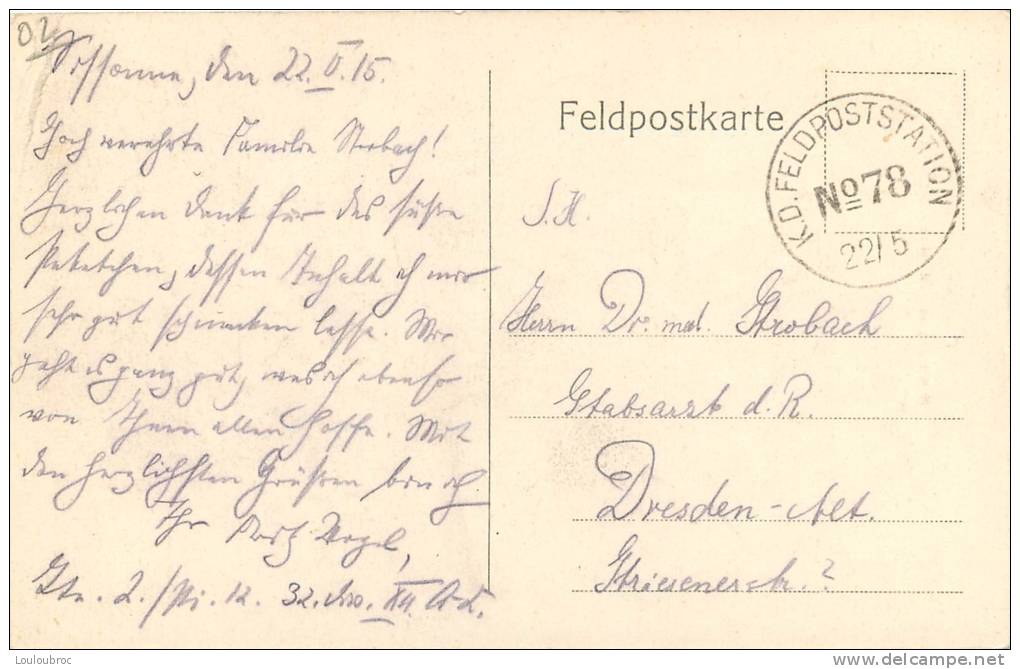 02
Sissonne, den 22. V. 15.
Hoch verehrte Familie Strobach!
Herzlichen Dank für das süße
Paketchen, dessen Inhalt ich mir
sehr gut schmecken lasse. Mir
geht es ganz gut, was ich ebenso
von Ihnen allen hoffe. Mit
den herzlichsten Grüßen bin ich
Ihr Vogel,
2./Pi. 12. 32. Div. XII. A. K.
Feldpostkarte
K.D. FELDPOSTSTATION
No 78
22/5
S. H.
Herrn Dr. med. Strobach
Stabsarzt d. R.
Dresden-Alt.
Striesenerstr. ?
Louloubroc
www.delcampe.net